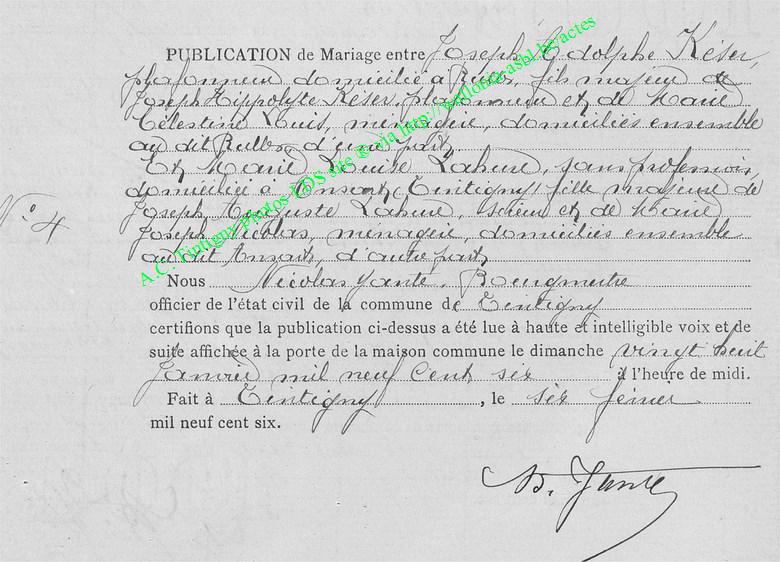 PUBLICATION de Mariage entre Joseph Adolphe Késer,
plafonneur domicilié à Rulles, fils majeur de
Joseph Hippolyte Késer, plafonneur et de Marie
Célestine Louis, menagère, domiciliés ensemble
au dit Rulles, d'une part,
Et Marie Louise Lahure, sans profession,
domiciliée à Ansart, Tintigny, fille majeure de
N° 4
Joseph Auguste Lahure, scieur et de Marie
Joseph Nicolas, menagère, domiciliés ensemble
au dit Ansart, d'autre part,
Nous Nicolas Yante, Bourgmestre
officier de l'état civil de la commune de Tintigny
certifions que la publication ci-dessus a été lue à haute et intelligible voix et de
suite affichée à la porte de la maison commune le dimanche vingt huit
Janvier mil neuf cent six à l'heure de midi.
Fait à Tintigny, le six février
mil neuf cent six.
N. Yante
A.C. Tintigny Photos LDS site ® via http://wallonia-asbl.be/actes